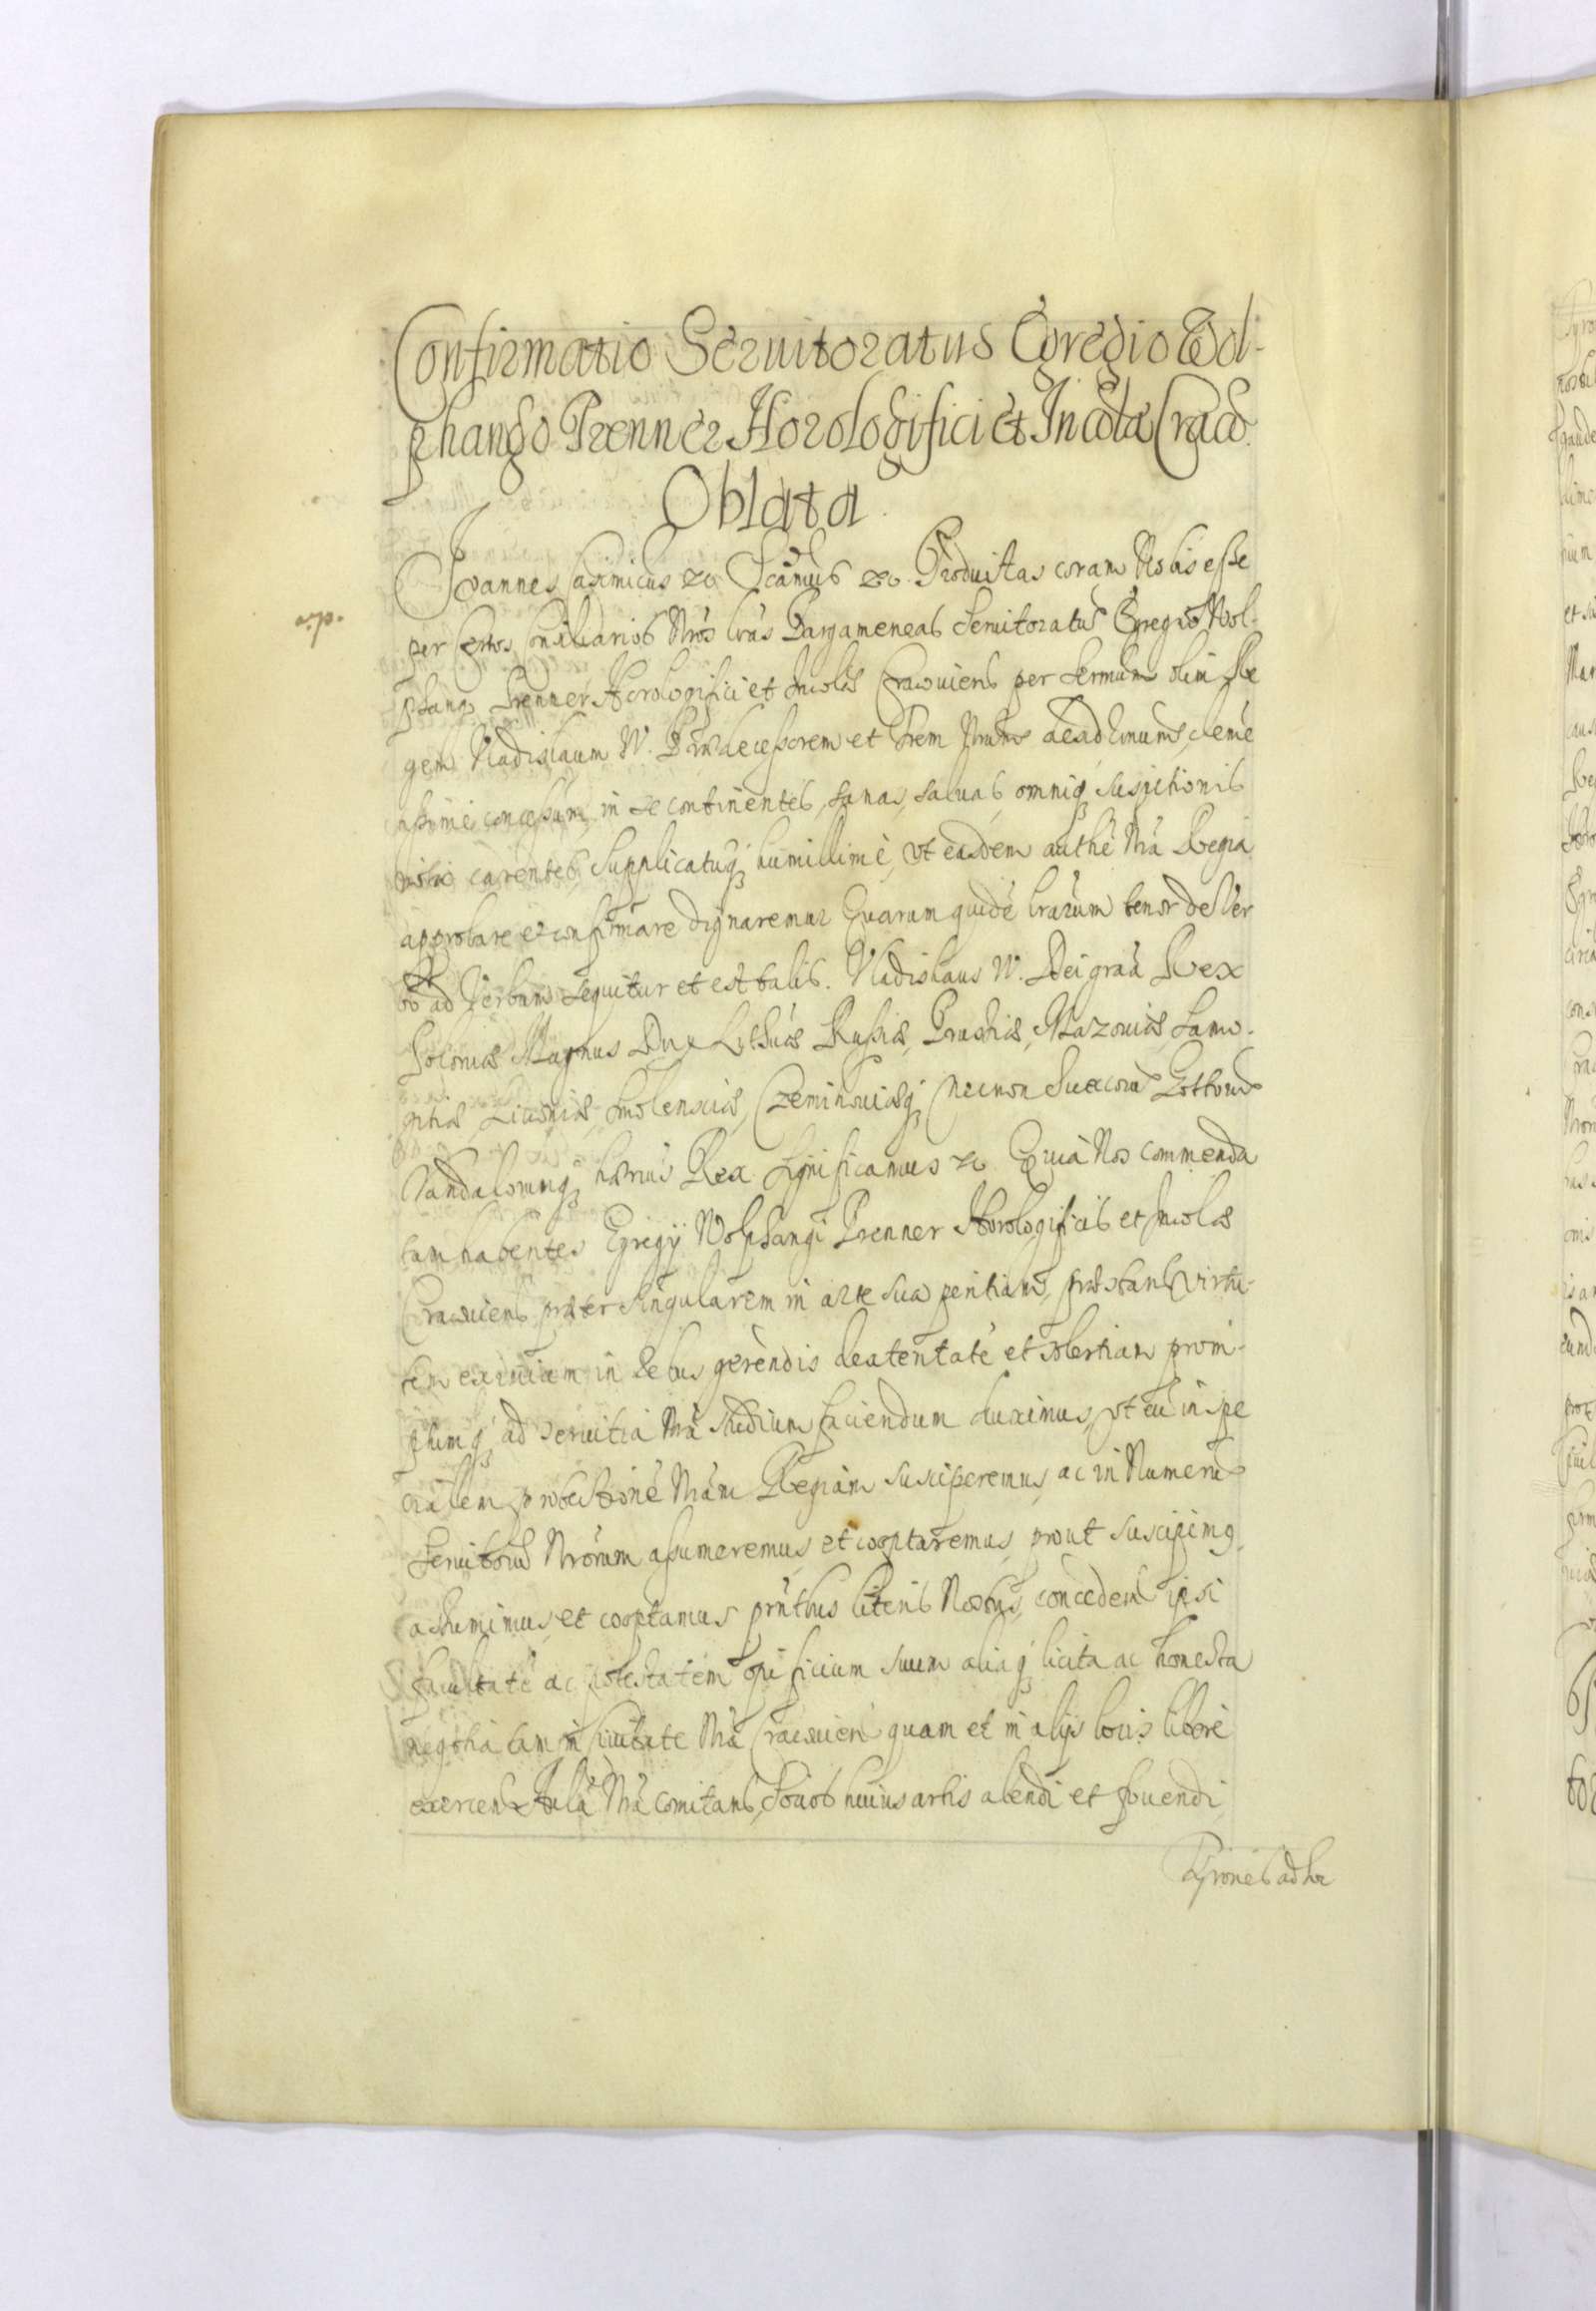 Confirmatio Seruitoratus Egregio Wol-
phango Prenner Horologifici et Incolæ Craco.
Oblata.
a.p.
Joannes Casimirus &c. Scamus &c. Productas coram Nobis esse
per Certos Consiliarios Nros lras Pargameneas Seruitoratus Egregio Wol-
phango Prenner Horologifici et Incolæ Cracouiens per Sermum olim Re
gem Vladislaum IV. Prædecessorem et Frem Nrum desdssmum, cleme
ntissime concessum in se continentes, sanas, saluas, omniq suspitionis
nota carentes, Supplicatuq humillimè, vt easdem authe Nra Regia
approbare et confirmare dignaremur Quarum quidè lrarum tenor de Ver
bo ad Verbum sequitur et est talis. Vladislaus IV. Dei gra Rex
Poloniæ Magnus Dux Lithuæ Russiæ, Prussiæ, Mazouiæ, Samo-
gitiæ, Liuoniæ, Smolensciæ, Czernihouiæq necnon Suecorū Gottorū
Vandalorumq hærius Rex. Significamus &c. Quia Nos commenda
tam habentes Egregij Wolphangi Prenner Horologificis et Incolæ
Cracouiens præter singularem in arte sua peritiam, præstans virtu-
tem eximiam in rebus gerendis dexteritate et solertiam prom-
ptumq ad seruitia Nra studium faciendum duximus, vt eū in spe
cialem protectionè Nram Regiam susciperemus, ac in Numerū
Seruitorū Nrorum assumeremus et cooptaremus, prout suscipimq
assumimus, et cooptamus pntbus literis Nostris, conceden ipsi
facultatè ac potestatem opificium suum aliaq licita ac honesta
negotia tam in Ciuitate Nra Cracouien quam et in alijs locis liberè
exercen Aula Nra comitans, Socios huius artis alendi et fouendi
Tyrones ad hæ